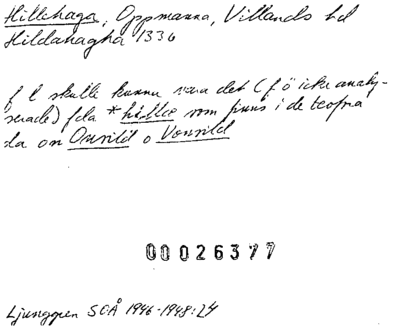 Hillehaga, Oppmanna, Villands hd
Hildahagha 1336
f l skulle kunna vara det (f ö icke analy-
serade) fda * som finns i de
da on o Vonsild
00026377
Ljunggren SOÅ 1946-1948:24